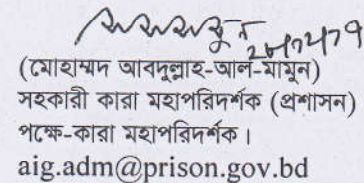 (মোহাম্মদ আবদুল্লাহ-আল-মামুন)
সহকারী কারা মহাপরিদর্শক (প্রশাসন)
পক্ষে-কারা মহাপরিদর্শক।
aig.adm@prison.gov.bd